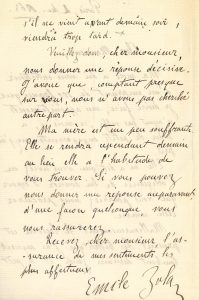 s'il ne vient avant demain soir,
viendra trop tard.
Veuillez donc, cher monsieur,
nous donner une réponse décisive.
J'avoue que, comptant presque
sur vous, nous n'avons pas cherché
autre part.
Ma mère est un peu souffrante.
Elle se rendra cependant demain
au lieu elle a l'habitude de
vous trouver. Si vous pouvez
nous donner une réponse auparavant
d'une façon quelconque, vous
nous rassurerez.
Recevez, cher monsieur, l'as-
surance de mes sentiments les
plus affectueux
Emile Zola